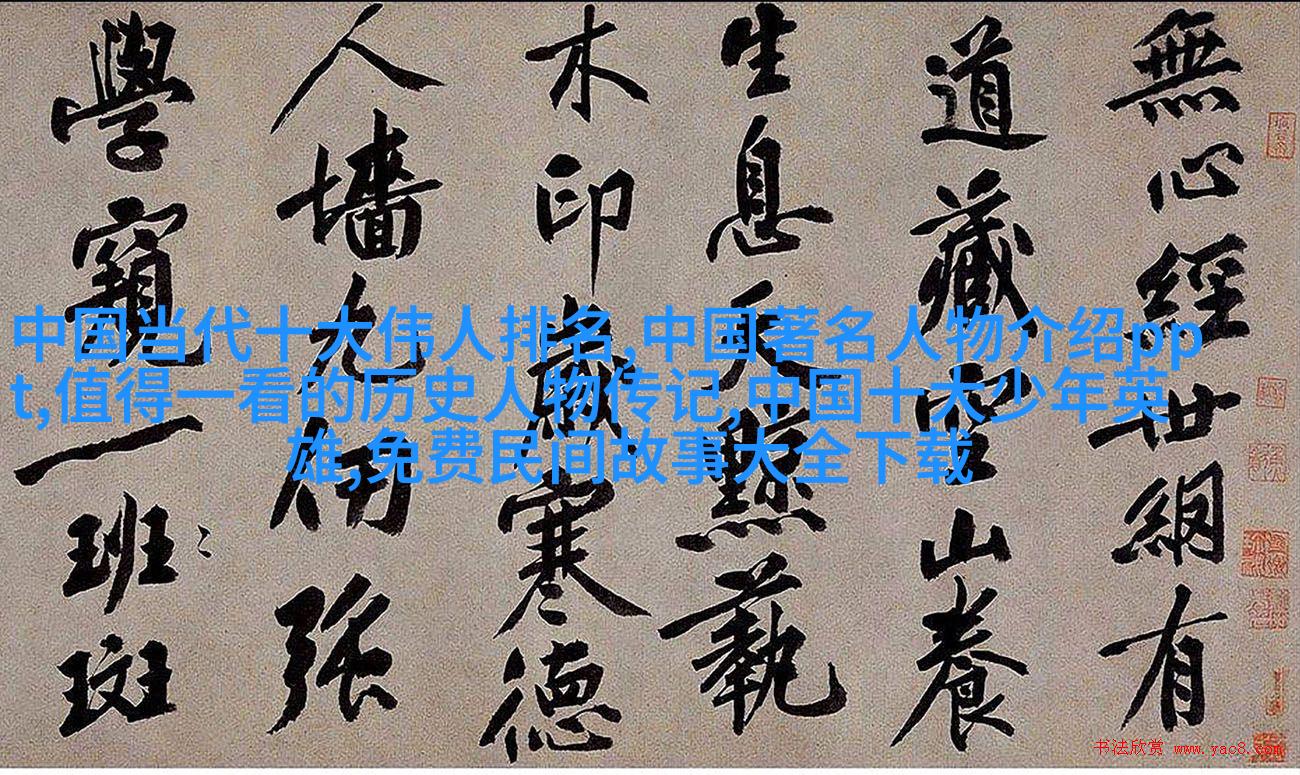 無心經世網有
道藏山養
生息天黥蓺
木印歲寒德
人墻九仞強
學窺一班〻斑
中国当代十大伟人排名,中国著名人物介绍pp
t,值得一看的历史人物传记,中国十大少年英
雄,免费民间故事大全下载
书法欣赏 www.yac8.com